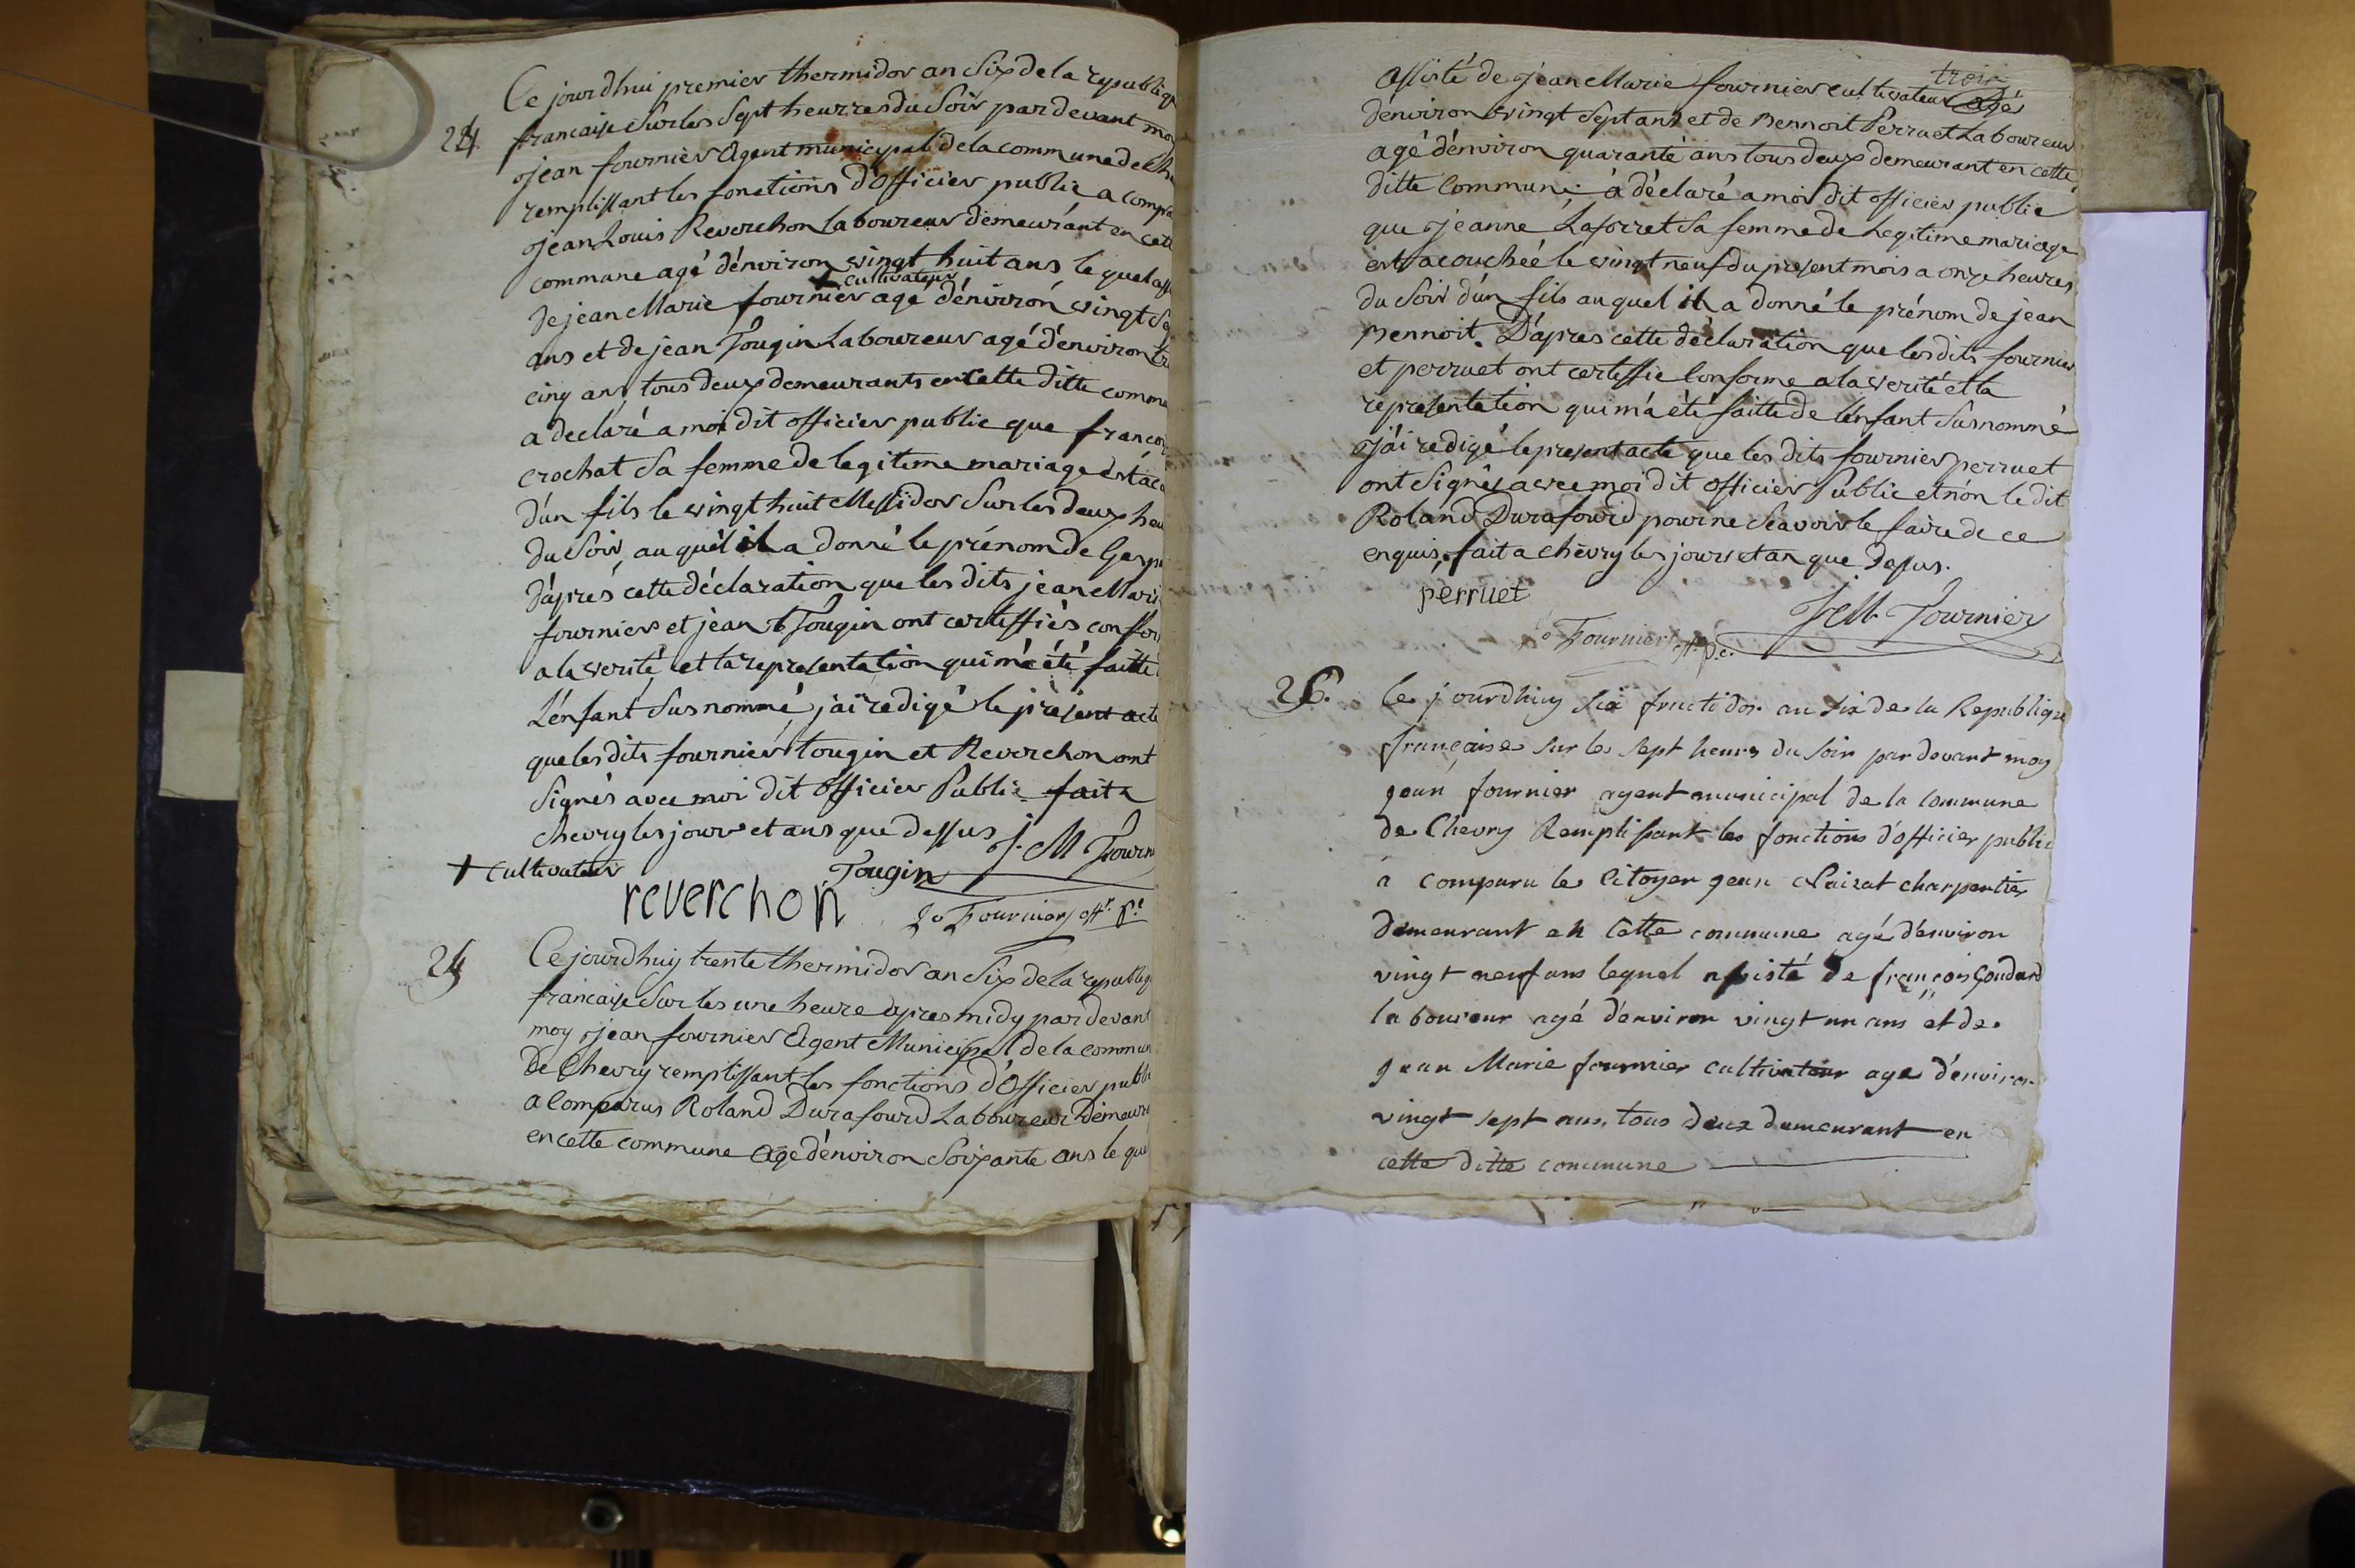 Ce jourdhui premier thermidor an Six de la republiq
24
francaise Sur les Sept heurres du Soir par devant moi
jean fournier Agent municipal de la commune de Che
remplissant les fonctions d'Officier public a compa
jean Louis Reverchon Laboureur demeurant en cett
commune agé d'environ vingt huit ans le quel ass
+ Cultivateur
de jean Marie fournier age d'environ vingt Se
ans et de jean Tougin Laboureur agé d'environ tre
cinq ans tous deux demeurants en Cette ditte comm
a declaré a moi dit officier public que francoi
crochat Sa femme de legitime mariage est aco
d'un fils le vingt huit Messidor Sur les deux heu
du Soir, au quel il a donné le prénom de Gaspa
d'après cette déclaration que les dits jean Mari
fournier et jean Tougin ont certiffiés confor
a la verité et la representation qui m'a été faitte
L'enfant Susnommé j'ai redigé le présent acte
que les dits fournier tougin et Reverchon ont
Signés avec moi dit Officier Public fait a
chevry les jour et ans que dessus
J. M Fourn
+ Cultivateur
Tougin
reverchon
Jo Fournier off.r P.e
25
Ce jourdhuy trente thermidor an Six de la republiq
francaise Sur les une heure apres midy par devant
moy jean fournier Agent Municipal de la commun
de Chevry remplissant les fonctions d'Officier publi
a Comparus Roland Durafourd Laboureur Demeura
en cette commune Agé d'environ Soixante ans le que
trois
assisté de jean Marie fournier cultivateur agé
d'environ vingt Sept ans et de Bennoit Perruet Laboureur
agé d'environ quarante ans tous deux demeurant en cette
ditte Commune à déclaré a moi dit officier public
que jeanne Laforret Sa femme de Legitime mariage
est acouchéé le vingt neuf du present mois a onze heures
du Soir d'un fils au quel il a donné le prénom de jean
Bennoit. D'apres cette déclaration que les dits fournier
et perruet ont certiffie Conforme a la verité et la
représentation qui m'a été faitte de l'enfant Susnommé
j'ai redigé le present acte que les dits fournier perruet
ont Signés avec moi dit Officier Public et non le dit
Roland Durafourd pour ne Scavoir le faire de ce
enquis, fait a chevry les jours et an que Depus.
perruet
J M Fournier
Jo Fournier off. P.e.
26.
Ce jourdhuy six fructidor an six de la Republique
française sur les sept heures du soir par devant moy
jean fournier agent municipal de la Commune
de Chevry Remplissant les fonctions d'officier public
à comparu le Citoyen jean Claizat charpentier
demeurant en Cette commune agé d'environ
vingt neuf ans lequel assisté de françois Goudard
laboureur agé d'environ vingt un ans et de
jean Marie fournier cultivateur age d'environ
vingt sept ans, tous deux demeurant en
cette ditte commune